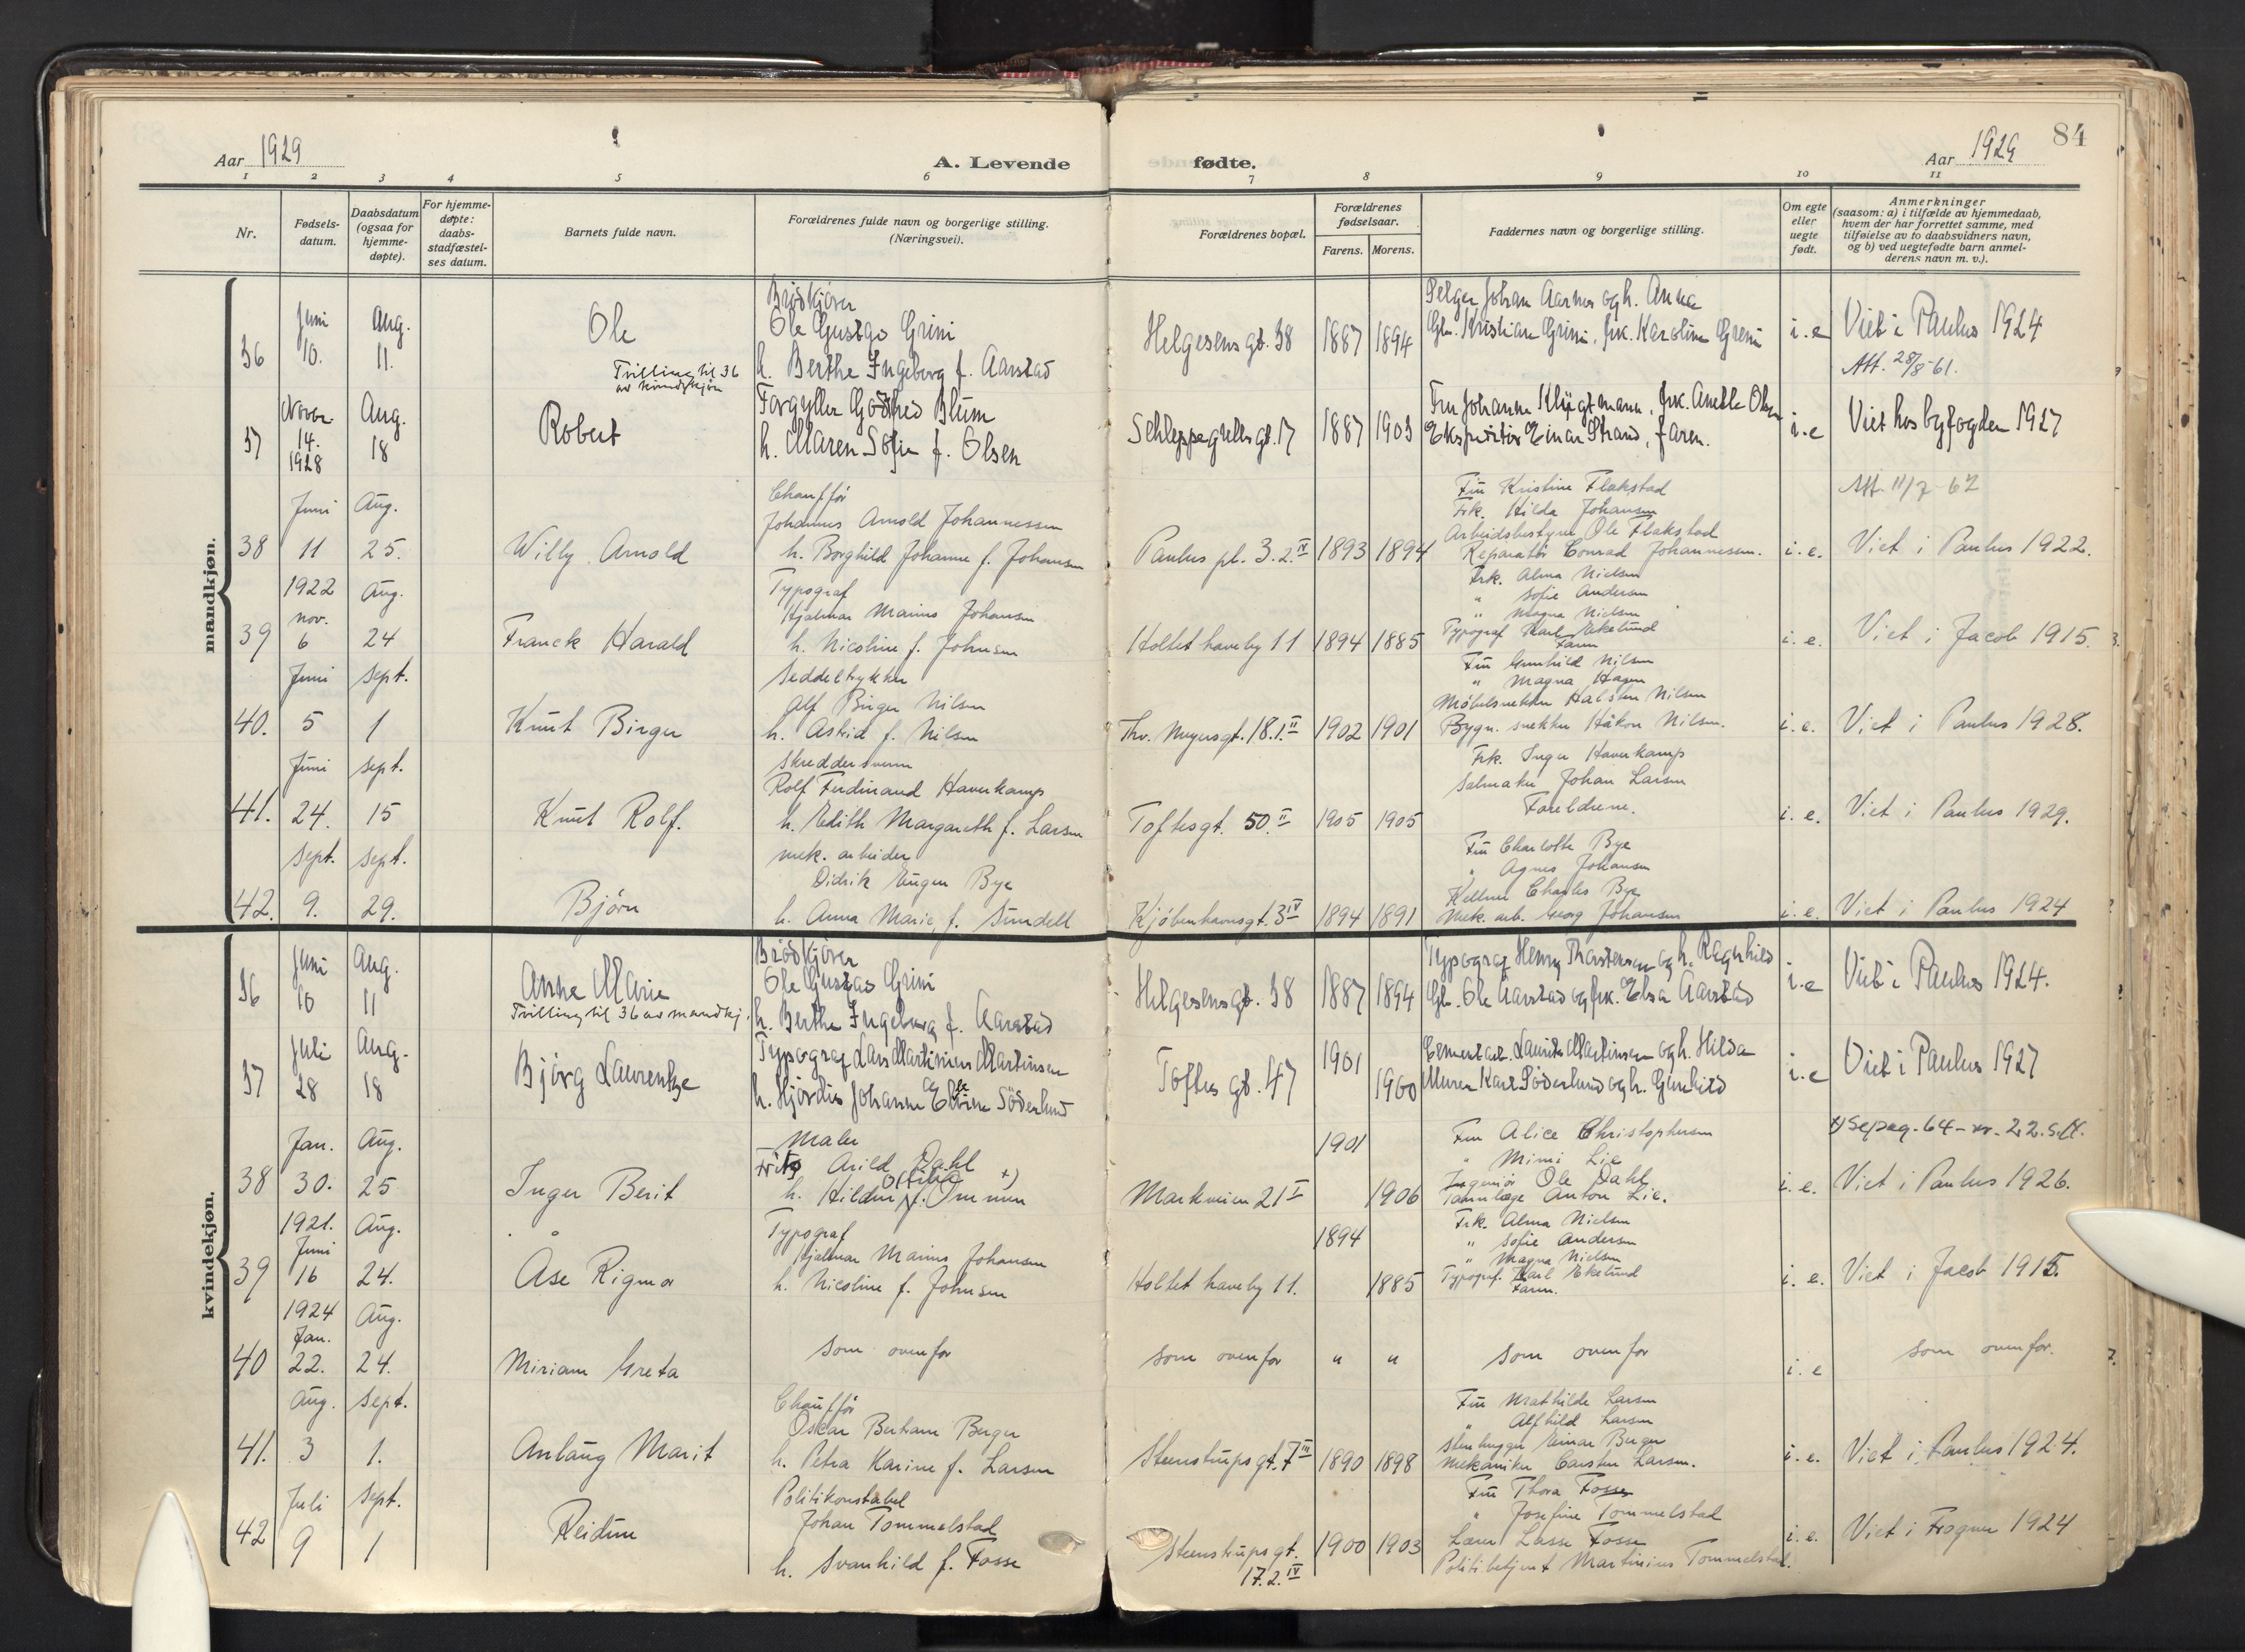 Aar 1929
A. Levende
fødte.
Aar 1929
84
1 2 3 4 5 6 7 8 9 10 11
Nr.
Fødsels-
datum.
Daabsdatum
(ogsaa for
hjemme-
døpte).
For hjemme-
døpte:
daabs-
stadfæstel-
ses datum.
Barnets fulde navn.
Forældrenes fulde navn og borgerlige stilling.
(Næringsvei).
Forældrenes bopæl.
Forældrenes
fødselsaar.
Farens. Morens.
Faddernes navn og borgerlige stilling.
Om egte
eller
uegte
født.
Anmerkninger
(saasom: a) i tilfælde av hjemmedaab,
hvem der har forrettet samme, med
tilføielse av to daabsvidners navn,
og b) ved uegtefødte barn anmel-
derens navn m. v.).
mandkjøn.
36
Juni
10.
Aug.
11.
Ole
Tvilling til 36
av kvindekjøn
Brødkjører
Ole Gustav Grini
h. Berthe Ingeborg f. Aarstad
Helgesens gt. 38
1887 1894
Selger Johan Aarnes og h. Anna
Gb. Kristian Grini, frk. Karoline Grini
i. e
Viet i Paulus 1924
Att. 28/8-61.
37
Novbr.
14.
1928
Aug.
18
Robert
Forgyller Godtfred Blum
h. Maren Sofie f. Olsen
Schleppegrells gt. 17
1887 1903
Fru Johanne , frk. Anette Olsen
Ekspeditør Einar Strand, faren.
i. e
Viet hos byfogden 1927
38
Juni
11
Aug.
25.
Willy Arnold
Chauffør
Johannes Arnold Johannessen
h. Borghild Johanne f. Johansen
Paulus pl. 3. 2. IV
1893 1894
Fru Kristine Flakstad
Frk. Hilda Johansen
Arbeidsbestyrer Ole Flakstad
Reparatør Conrad Johannessen.
i. e.
Att. 11/7-62
Viet i Paulus 1922.
39
1922
nov.
6
Aug.
24
Franck Harald
Typograf
Hjalmar Marius Johansen
h. Nicoline f. Johnsen
Holtet haveby 11
1894 1885
Frk. Alma Nielsen
" Sofie Andersen
" Magna Nielsen
Typograf Karl Ekelund
Faren
i. e.
Viet i Jacob 1915.
40.
Juni
5
Sept.
1
Knut Birger
Seddeltrykker
Alf Birger Nilsen
h. Astrid f. Nilsen
Thv. Meyersgt. 18. I. II
1902 1901
Fru Gunhild Nilsen
" Magna Hagen
Møbelsnekker Halsten Nilsen
Bygn. snekker Håkon Nilsen.
i. e.
Viet i Paulus 1928.
41.
Juni
24.
sept.
15
Knut Rolf.
Skreddersvenn
Rolf Ferdinand Haverkamp
h. Edith Margareth f. Larsen
Toftesgt. 50. II
1905 1905
Frk. Inger Haverkamp
Salmaker Johan Larsen
Foreldrene.
i. e.
Viet i Paulus 1929.
42.
Sept.
9.
sept.
29.
Bjørn
mek. arbeider
Didrik Eugen Bye
h. Anna Marie f. Sundell
Kjøbenhavnsgt. 3 IV
1894 1891
Fru Charlotte Bye
" Agnes Johansen
Kellner Charles Bye
Mek. arb. Georg Johansen
i. e.
Viet i Paulus 1924
kvindekjøn.
36
Juni
10
Aug.
11
Anne Marie
Tvilling til 36 av mandkj.
Brødkjører
Ole Gustav Grini
h. Berthe Ingeborg f. Aarstad
Helgesens gt. 38
1887 1894
Typograf Henry Thorstensen og h. Ragnhild
Gb. Ole Aarstad og frk. Elsa Aarstad
i. e
Viet i Paulus 1924.
37
Juli
28
Aug.
18
Bjørg Laurentze
Typograf Lars Martinius Martinsen
h. Hjørdis Johanne Söderlund
Toftes gt. 47
1901
1900
Cementarb. Laurits Martinsen og h. Hilda
Murer Karl Söderlund og h. Gunhild
i. e
Viet i Paulus 1927
38
Jan.
30.
Aug.
25
Inger Berit
Maler
Fritz Arild Dahl
h. Hildur Oliva f. Ommen x)
Markveien 21 I
1901
1906
Fru Alice Christophersen
" Mimi Lie
Ingeniør Ole Dahl
Tannlæge Anton Lie.
i. e.
x) Se pag. 64 - nr. 22. S.H.
Viet i Paulus 1926.
39
1921.
Juni
16
Aug.
24.
Åse Rigmor
Typograf
Hjalmar Marius Johansen
h. Nicoline f. Johnsen
Holtet haveby 11.
1894
1885
Frk. Alma Nielsen
" Sofie Andersen
" Magna Nielsen
Typograf. Karl Ekelund
Faren.
i. e.
Viet i Jacob 1915.
40
1924
Jan.
22.
Aug.
24.
Miriam Greta
som ovenfor
som ovenfor
" "
som ovenfor
i. e
som ovenfor.
41.
Aug.
3
Sept.
1.
Anlaug Marit
Chauffør
Oscar Bertram Berger
h. Petra Karine f. Larsen
Steenstrupsgt. 7 III
1890 1898
Fru Mathilde Larsen
" Alfhild Larsen
Stenhugger Einar Berger
Mekaniker Carsten Larsen.
i. e.
Viet i Paulus 1924.
42
Juli
9
Sept.
1
Reidun
Politikonstabel
Johan Tommelstad
h. Svanhild f. Fosse
Steenstrupsgt.
17. 2. IV
1900 1903
Fru Thora Fosse
" Josefine Tommelstad
Lærer Lasse Fosse
Politibetjent Martinius Tommelstad.
i. e.
Viet i Frogner 1924